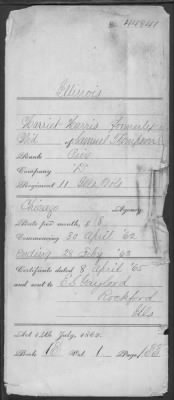 44841
Illinois
Harriet Harris formerly
Wid of Samuel Thompson
Rank Priv
Company F
Regiment 11 Ills Vols
Chicago Agency
Rate per month, $8
Commencing 20 April '62
Ending 24 July '63
Certificate dated 8 April '65
and sent to
Rockford
Ills
Act 14th July, 1862.
Book B Vol. 1 Page 138